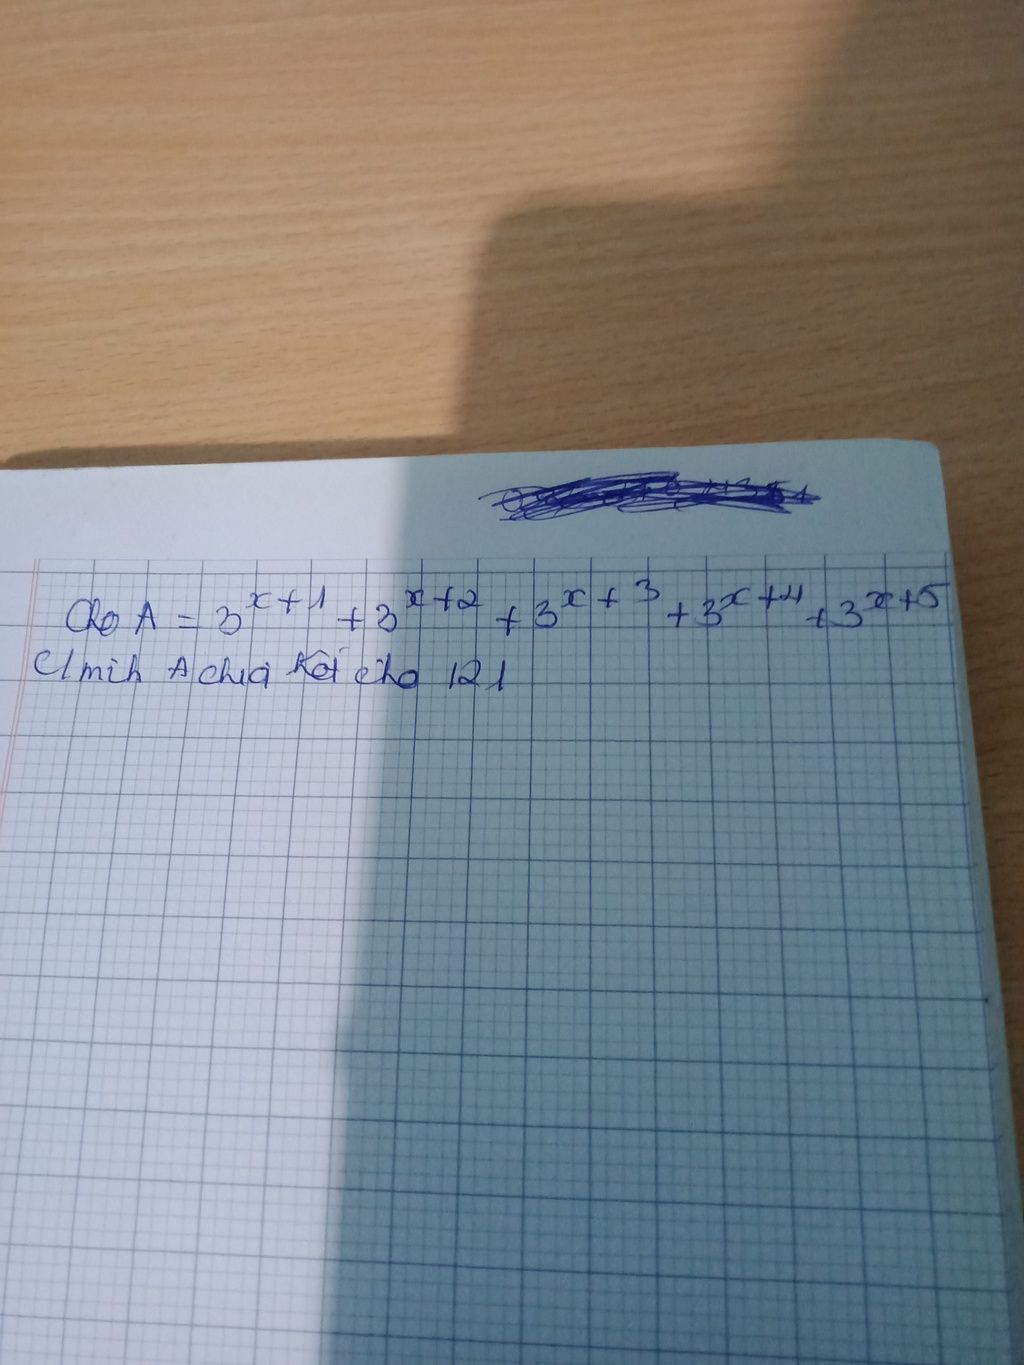 Cho A = 3^{x+1} + 3^{x+2} + 3^{x+3} + 3^{x+4} + 3^{x+5}
C/min A chia hết cho 121